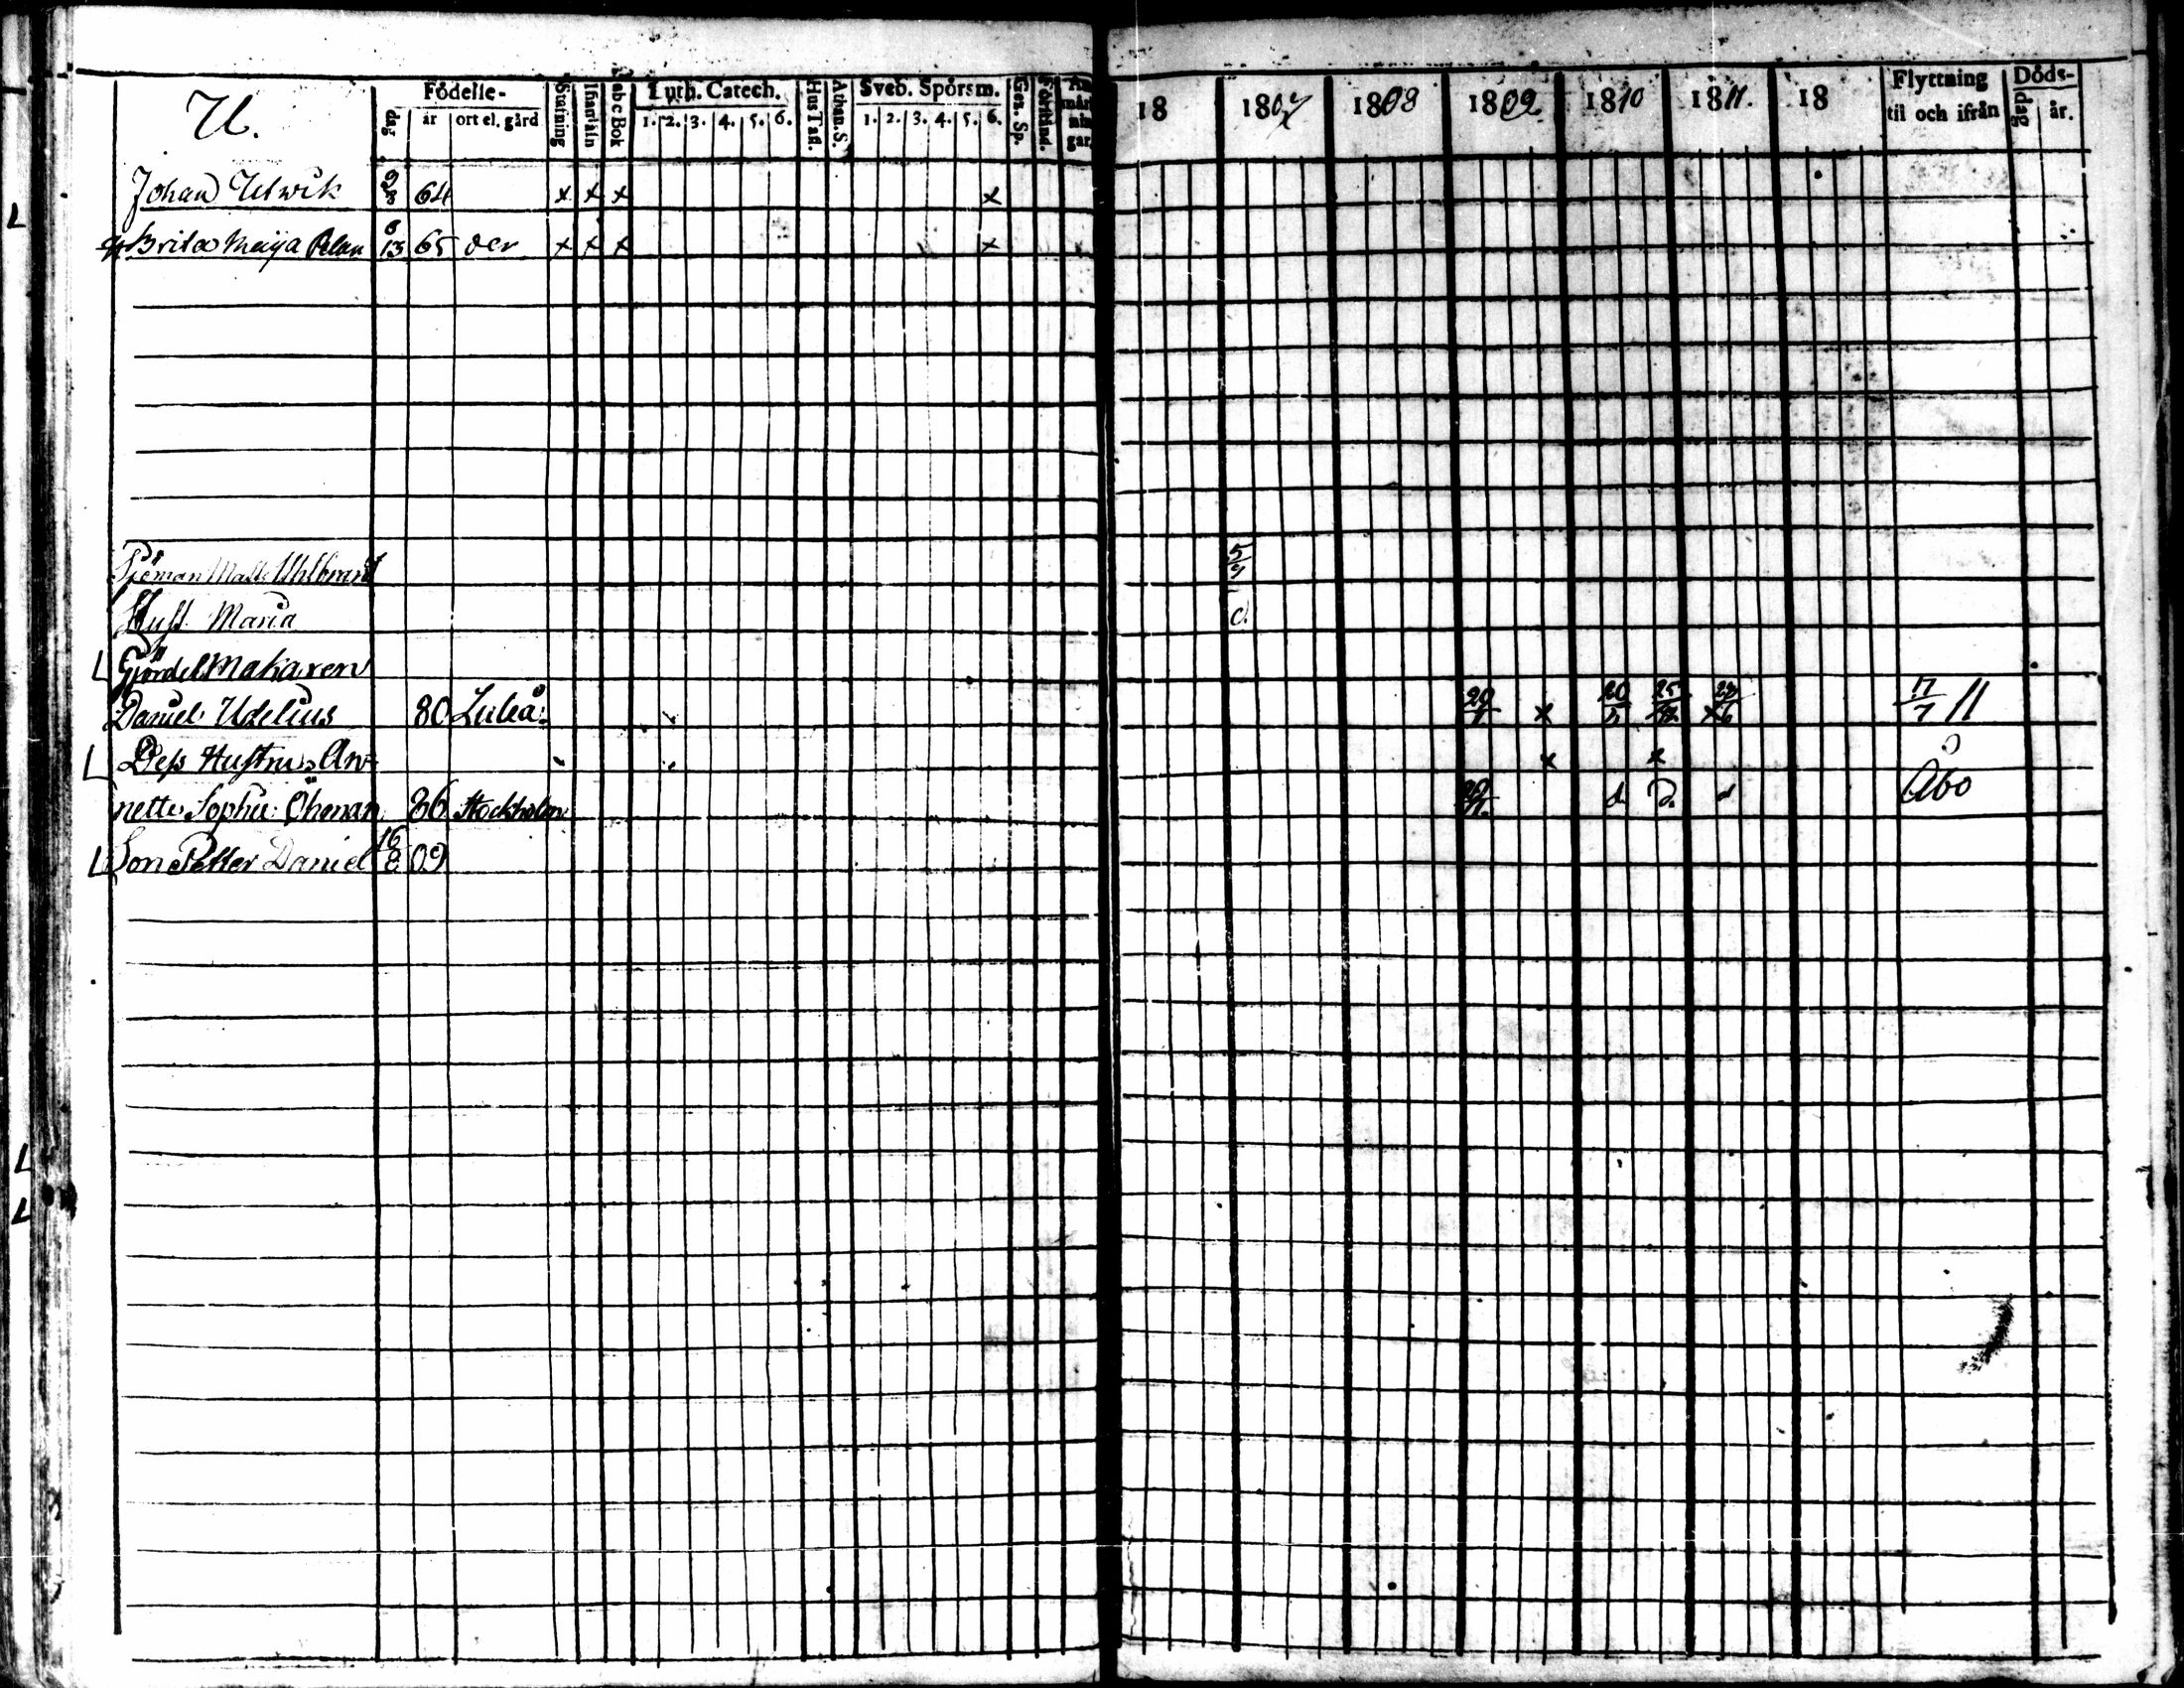 U.
Födelse-
dag år ort el. gård
Stafning
Innan åtn
abc Bok
Luth. Catech.
1. 2. 3. 4. 5. 6.
Hus Tafl.
Athan. S.
Sveb. Spörsm.
1. 2. 3. 4. 5. 6.
Gez. Sp.
Förstånd.
An mär nin gar.
18 1807 1808 1809 1810 1811 18
Flyttning til och ifrån
Döds-
dag år.
Johan Ulwik 64 x x x x
Brita Maija 6/13 65 x x x x
Sjöman Matts Uhlbrand 5/7
Hust. Maria d.
L Gjördelmakaren
Daniel Udelius 80 Luleå x 20/5 x 17/7 11
L Dess Hustru An- x x
nette Sophie Öhman 86 Stockholm d. D. d Åbo
L Son Petter Daniel 16/8 09